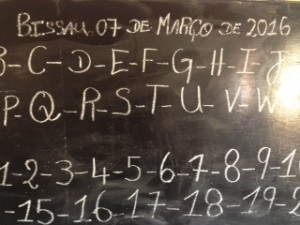 BISSAU, 07 DE MARÇO DE 2016
B-C-D-E-F-G-H-I-J
P-Q-R-S-T-U-V-W
1-2-3-4-5-6-7-8-9-1
-15-16-17-18-19-2